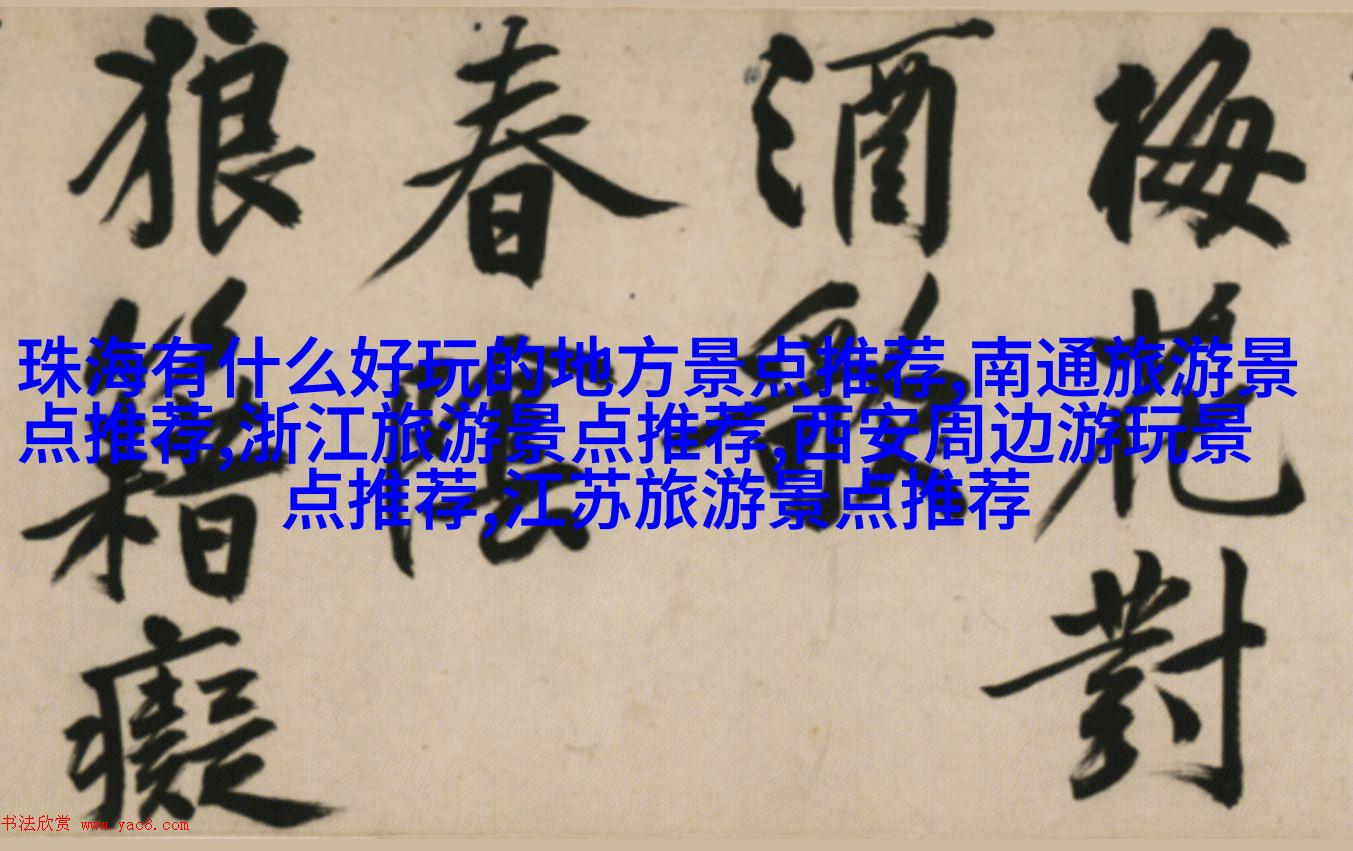 梅花對
酒
春
狼籍癡
珠海有什么好玩的地方景点推荐,南通旅游景
点推荐,浙江旅游景点推荐,西安周边游玩景
点推荐,江苏旅游景点推荐
书法欣赏 www.yac8.com